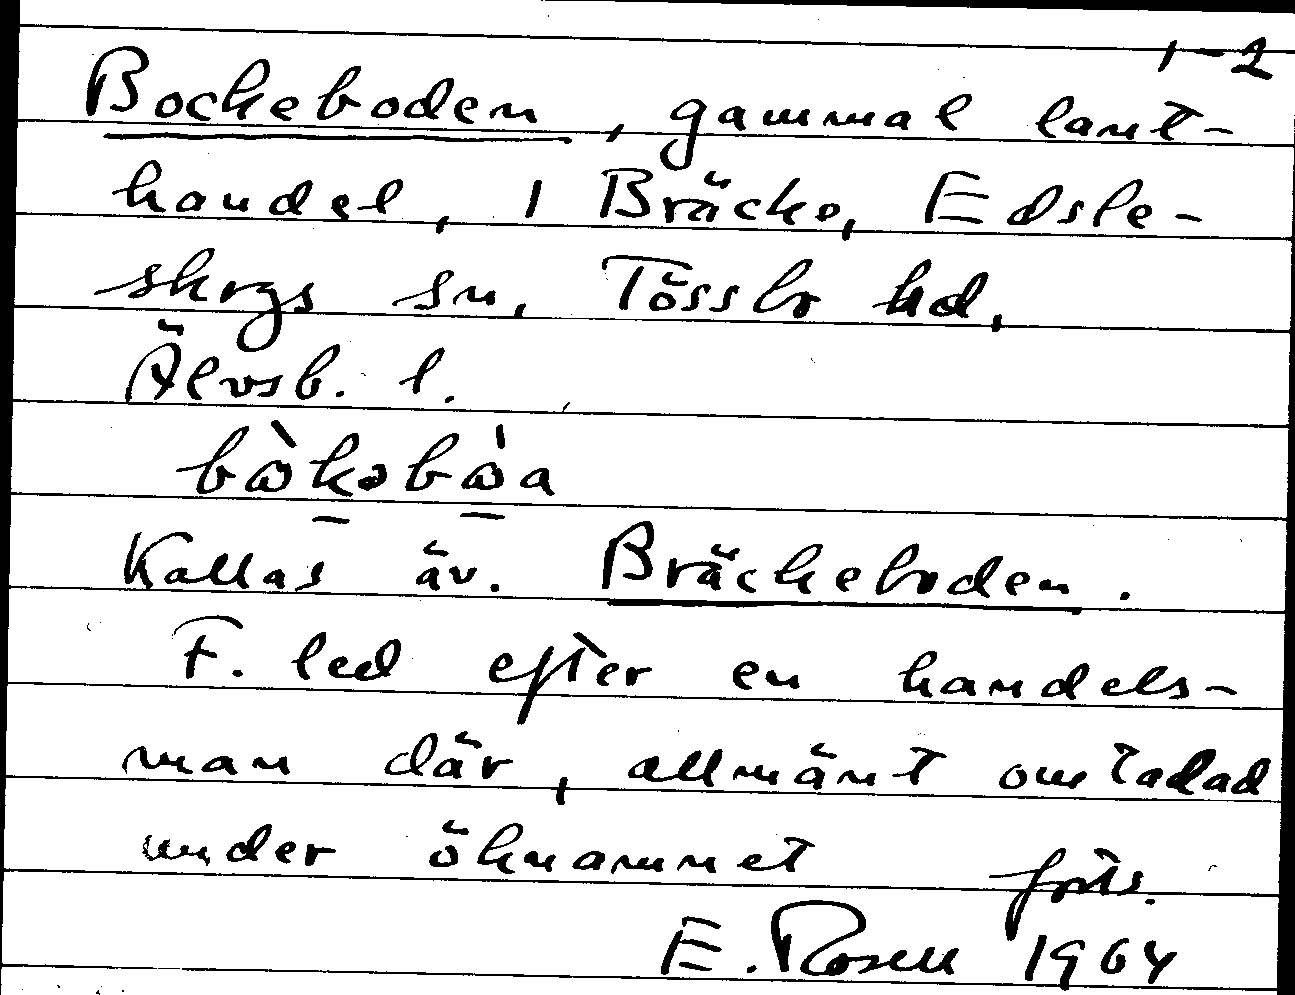 1-2
Bockeboden, gammal lant-
handel, i Bräcke, Edsle-
skogs sn, Tössbo hd,
Älvsb. l.
bὼkəbὼa
Kallas äv. Bräckeboden.
F. led efter en handels-
man där, allmänt omtalad
under öknamnet forts.
E. Rosell 1964